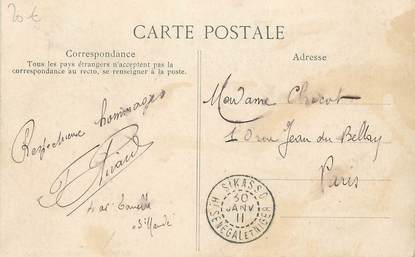 20 €
CARTE POSTALE
Correspondance
Tous les pays étrangers n'acceptent pas la
correspondance au recto, se renseigner à la poste.
Adresse
Respectueux hommages
Madame
10 rue Jean du Bellay
Paris
SIKASSO
30
JANV
11
HT SENEGAL ET NIGER